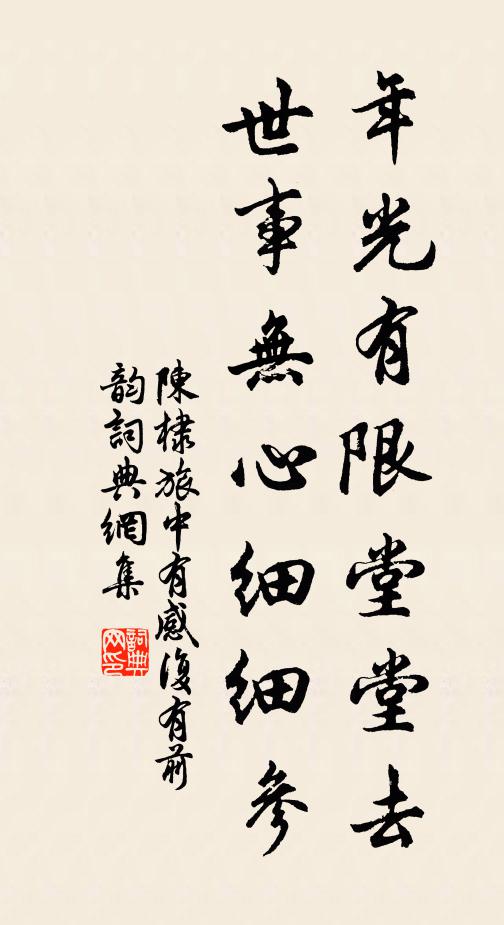 年光有限堂堂去
世事無心細細參
陳棣旅中有感復有前
韵詞典網集
詞典网印